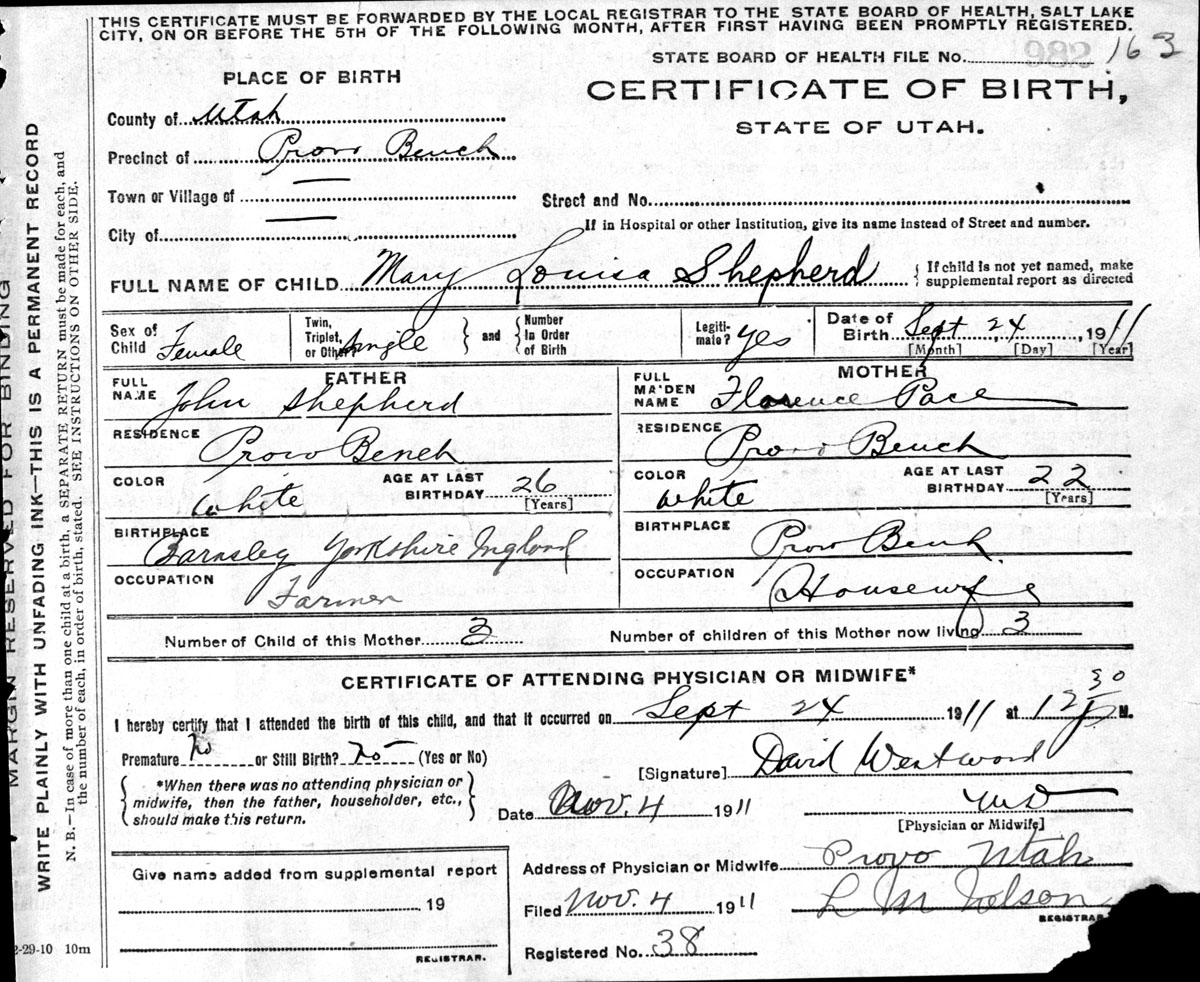 THIS CERTIFICATE MUST BE FORWARDED BY THE LOCAL REGISTRAR TO THE STATE BOARD OF HEALTH, SALT LAKE
CITY, ON OR BEFORE THE 5TH OF THE FOLLOWING MONTH, AFTER FIRST HAVING BEEN PROMPTLY REGISTERED.
STATE BOARD OF HEALTH FILE NO. 163
PLACE OF BIRTH
CERTIFICATE OF BIRTH,
STATE OF UTAH.
County of Utah
Precinct of Provo Bench
Town or Village of
Street and No.
If in Hospital or other Institution, give its name instead of Street and number.
City of
FULL NAME OF CHILD Mary Louisa Shepherd
{ If child is not yet named, make
supplemental report as directed
Sex of
Child Female
Twin,
Triplet,
or Other? Single
} and {
Number
in Order
of Birth
Legiti-
mate? yes
Date of
Birth Sept 24, 1911
[Month] [Day] [Year]
FATHER
FULL
NAME John Shepherd
RESIDENCE Provo Bench
COLOR White
AGE AT LAST
BIRTHDAY 26
[Years]
BIRTHPLACE Barnsley Yorkshire Ingland
OCCUPATION Farmer
MOTHER
FULL
MAIDEN
NAME Florence Pace
RESIDENCE Provo Bench
COLOR White
AGE AT LAST
BIRTHDAY 22
[Years]
BIRTHPLACE Provo Bench
OCCUPATION Housewife
Number of Child of this Mother 3
Number of children of this Mother now living 3
CERTIFICATE OF ATTENDING PHYSICIAN OR MIDWIFE*
I hereby certify that I attended the birth of this child, and that it occurred on Sept 24 1911 at 12 30 P M.
Premature no or Still Birth? no (Yes or No)
*When there was no attending physician or
midwife, then the father, householder, etc.,
should make this return.
[Signature] David Westwood
Date Nov. 4 1911
MD
[Physician or Midwife]
Give name added from supplemental report
19
REGISTRAR.
Address of Physician or Midwife Provo Utah
Filed Nov. 4 1911
L M Nelson
REGISTRAR
Registered No. 38
MARGIN RESERVED FOR BINDING
WRITE PLAINLY WITH UNFADING INK—THIS IS A PERMANENT RECORD
N. B.—In case of more than one child at a birth, a SEPARATE RETURN must be made for each, and
the number of each, in order of birth, stated. SEE INSTRUCTIONS ON OTHER SIDE.
-29-10 10m